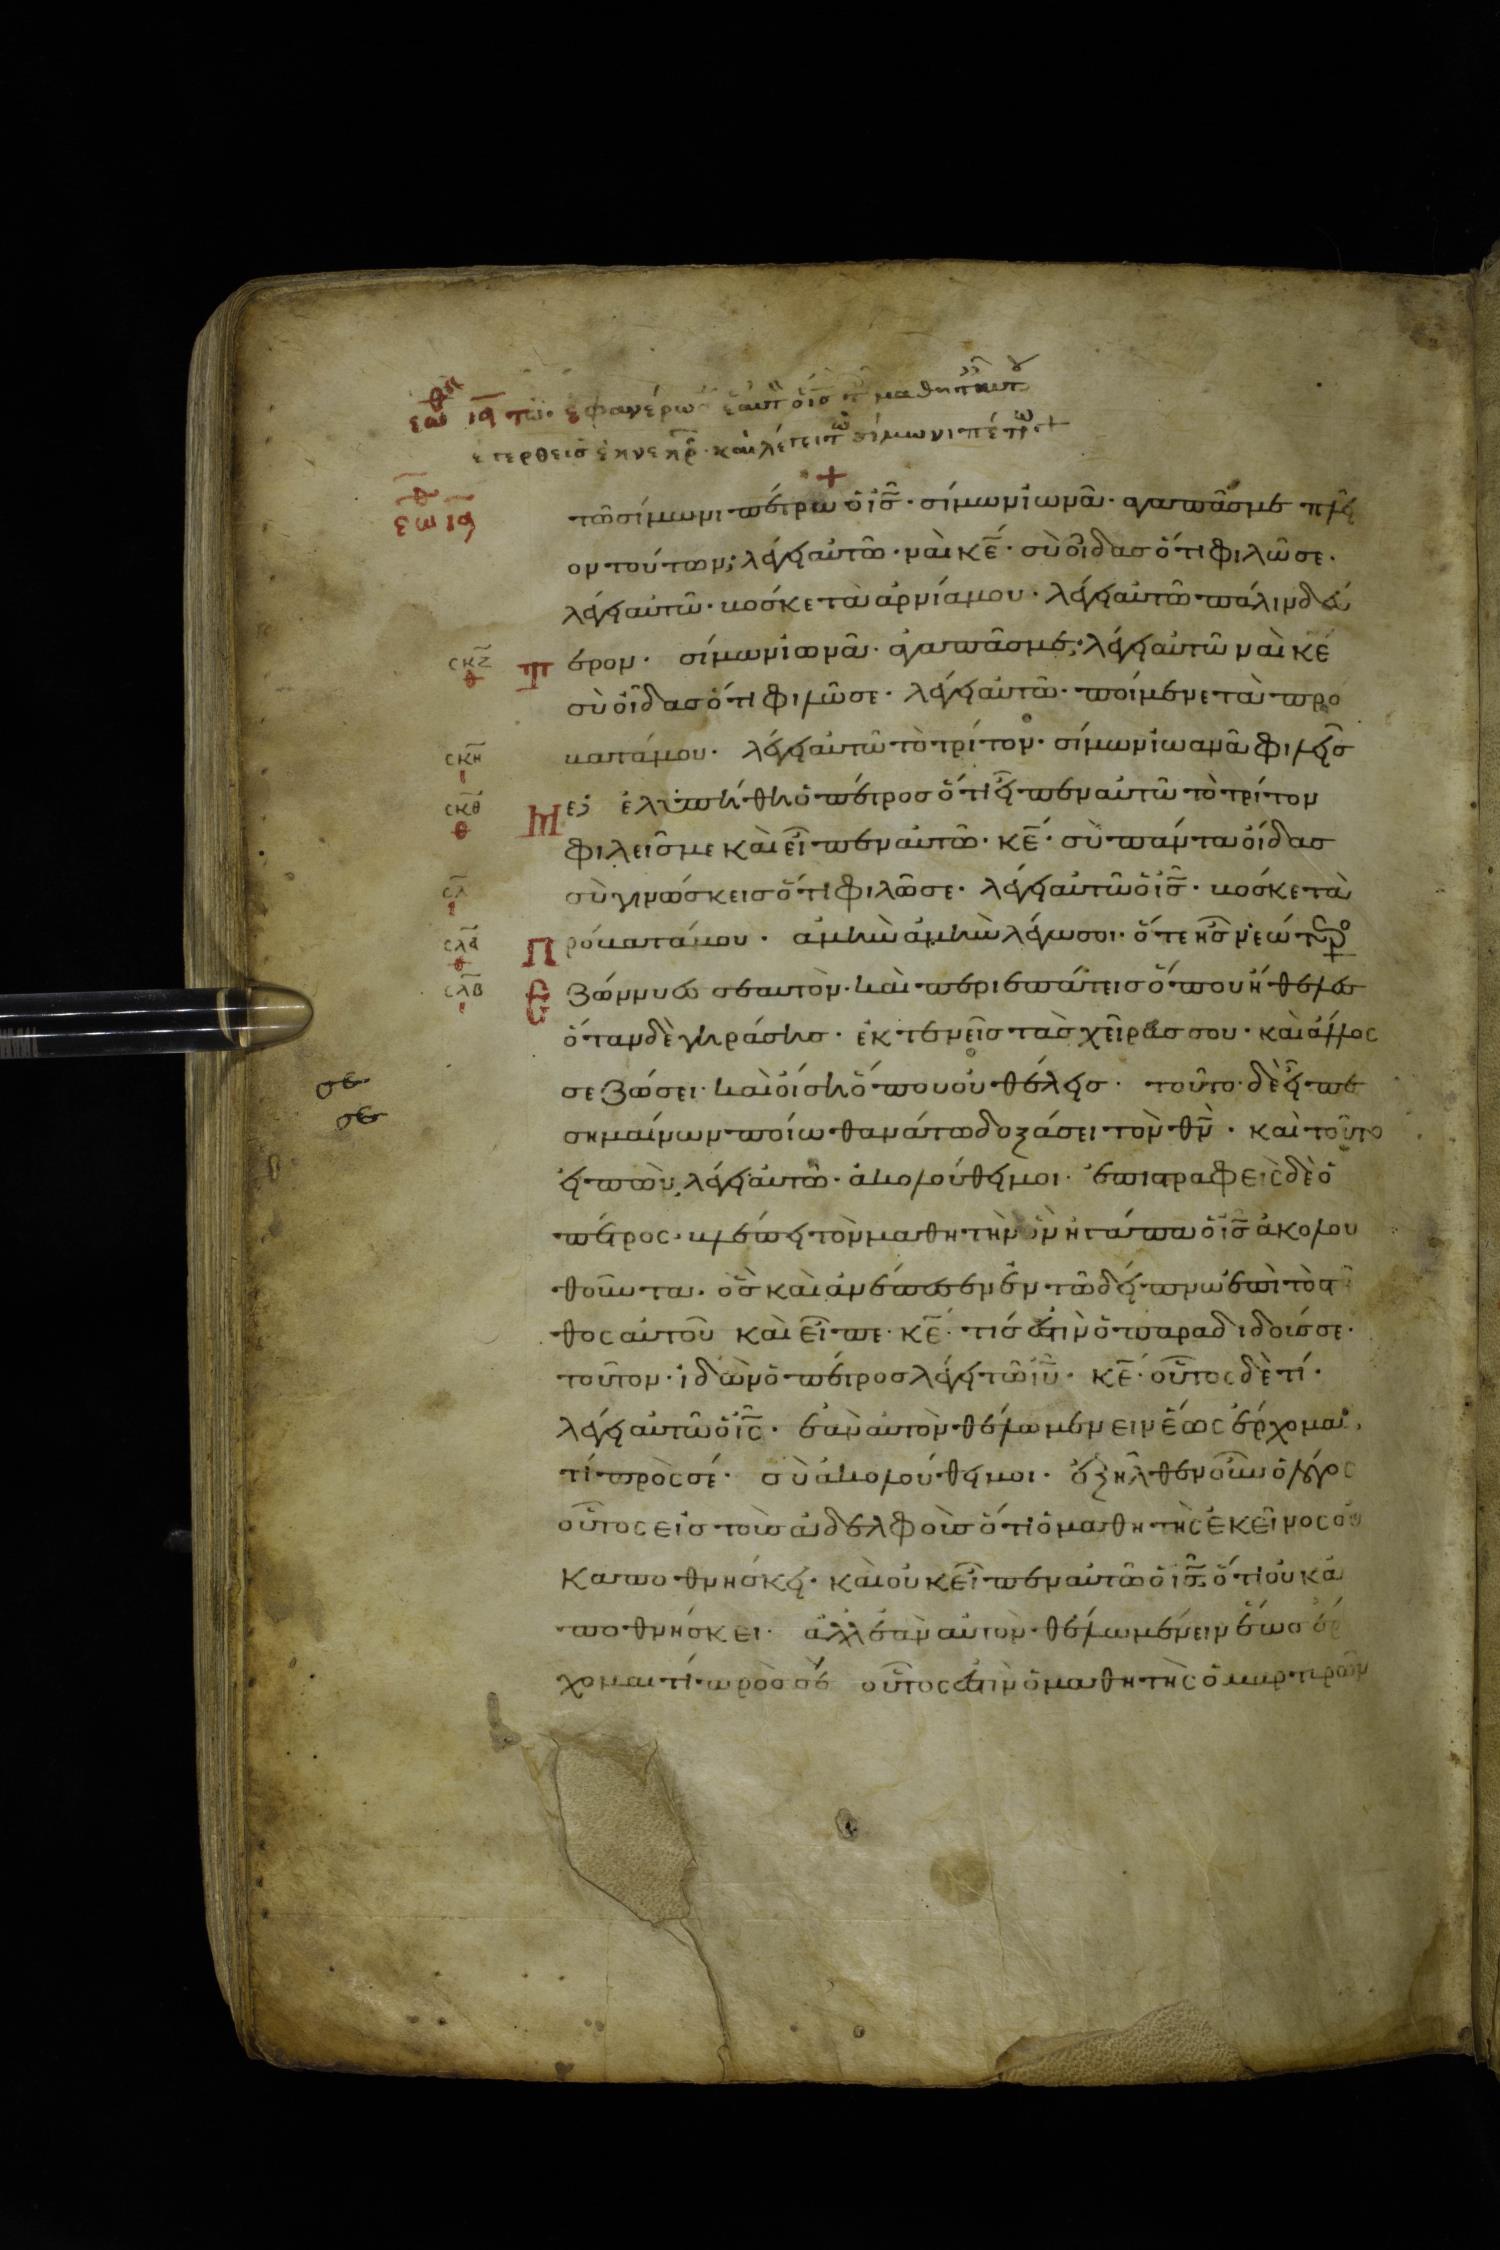 ἑωθ ια τῶ ἐφανέρωσ ἑαυτ ὁ ις τ μαθητ αυτου
ἐγερθεὶς ἐκ νεκρ · καὶ λέγει τῶ σίμωνι πέτρ +
τῶ σίμωνι πέτρω ὁ ις · σίμων ἰωνᾶ · ἀγαπᾶς με πλεῖ
ον τούτων; λέγει αὐτῶ · ναὶ κε · σὺ οἶδας ὅτι φιλῶ σε ·
λέγει αὐτῶ · βόσκε τὰ ἀρνία μου · λέγει αὐτῶ πάλιν δεύ
τερον · σίμων ἰωνᾶ · ἀγαπᾶς με; λέγει αὐτῶ ναὶ κε
σὺ οἶδας ὅτι φιλῶ σε · λέγει αὐτῶ · ποίμενε τὰ πρό
βατά μου · λέγει αὐτῶ τὸ τρίτον · σίμων ἰωαμᾶ φιλεῖς
με; ἐλυπήθη ὁ πέτρος ὅτι εἶπεν αὐτῶ τὸ τρίτον
φιλεῖς με καὶ εἶπεν αὐτῶ · κε · σὺ πάντα οἶδας
σὺ γινώσκεις ὅτι φιλῶ σε · λέγει αὐτῶ ὁ ις · βόσκε τὰ
πρόβατά μου · ἀμὴν ἀμὴν λέγω σοι · ὅτε ἦς νεώτερο
ἐζώννυες σεαυτὸν · καὶ περιεπάτεις ὅπου ἤθελες
ὅταν δὲ γηράσης · ἐκτενεῖς τὰς χεῖρας σου · καὶ ἄλλος
σε ζώσει · καὶ οἴσει ὅπου οὐ θέλεις · τοῦτο δὲ εἶπε
σημαίνων ποίω θανάτω δοξάσει τὸν θν · καὶ τοῦτο
εἰπὼν λέγει αὐτῶ · ἀκολούθει μοι · ἐπιστραφεὶς δὲ ὁ
πέτρος · βλέπει τὸν μαθητὴν ὃν ἠγάπα ὁ ις ἀκολου
θοῦντα · ὃς καὶ ἀνέπεσεν ἐν τῶ δείπνω ἐπὶ τὸ στῆ
θος αὐτοῦ καὶ εἶπε · κε · τίς ἐστιν ὁ παραδιδούς σε ·
τοῦτον · ἰδὼν ὁ πέτρος λέγει τῶ ιυ · κε · οὗτος δὲ τί ·
λέγει αὐτῶ ὁ ις · ἐὰν αὐτὸν θέλω μένειν ἕως ἔρχομαι ·
τί πρὸς σέ · σὺ ἀκολούθει μοι · ἐξῆλθεν οὖν ὁ λόγος
οὗτος εἰς τοὺς ἀδελφοὺς ὅτι ὁ μαθητὴς ἐκεῖνος οὐ
κ ἀποθνήσκει · καὶ οὐκ εἶπεν αὐτῶ ὁ ις ὅτι οὐκ ἀ
ποθνήσκει · ἀλλ ἐὰν αὐτὸν θέλω μένειν ἕως ἔρ
χομαι τί πρὸς σέ οὗτος ἐστιν ὁ μαθητὴς ὁ μαρτυρῶν
εω ια
ϲκζ
ϲκη
ϲκθ
ϲλ
ϲλα
ϲλβ